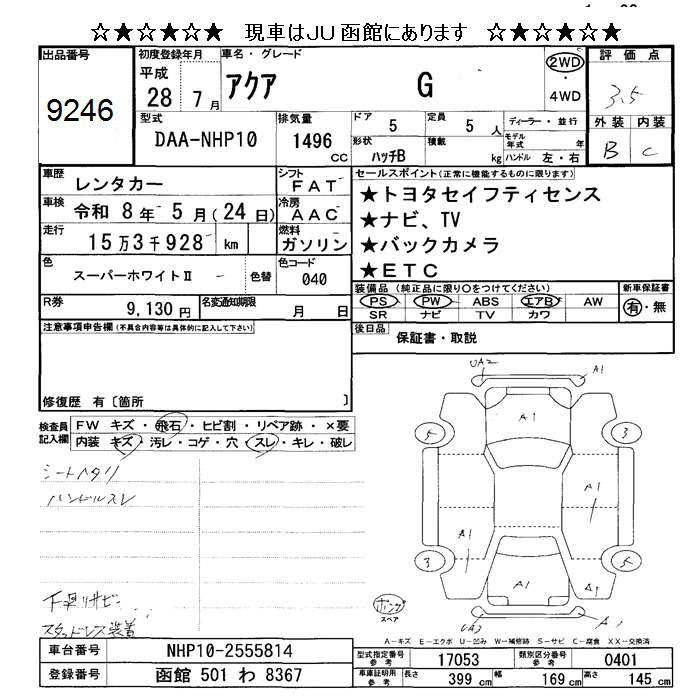 ☆★☆★☆★ 現車はJU函館にあります ☆★☆★☆★
出品番号
9246
初度登録年月
平成
28 7月
車名・グレード
アクア G
2WD
4WD
評価点
3.5
外装 内装
B C
型式
DAA-NHP10
排気量
1496
CC
ドア
5
定員
5 人
形状
ハッチB
積載
kg
ディーラー・並行
モデル年式 年
ハンドル 左・右
車歴
レンタカー
シフト
FAT
車検
令和 8年 5月(24日)
冷房
AAC
走行
15万3千928 km
燃料
ガソリン
色
スーパーホワイトⅡ
色替
色コード
040
R券
9,130円
名変通知期限
月 日
セールスポイント(正常に機能するものに限ります)
★トヨタセイフティセンス
★ナビ、TV
★バックカメラ
★ETC
装備品(純正品に限り○をつけてください)
PS PW ABS エアB AW
SR ナビ TV カワ
新車保証書
有・無
後日品
保証書・取説
注意事項申告欄(不具合内容等は具体的に記入して下さい)
修復歴 有〔箇所 〕
検査員記入欄
FW キズ・飛石・ヒビ割・リペア跡・×要
内装 キズ・汚レ・コゲ・穴・スレ・キレ・破レ
シートヘタリ
ハンドルスレ
下廻リサビ
スタッドレス装着
UA2 A1
A1
5 3
A1
A1
3 5
A1 A1
UA2 A1
スペア
A-キズ E-エクボ U-凹み W-補修跡 S-サビ C-腐食 XX-交換済
車台番号
NHP10-2555814
登録番号
函館 501 わ 8367
型式指定番号
参考
17053
類別区分番号
参考
0401
車庫証明用
参考
長さ 399 cm 幅 169 cm 高さ 145 cm